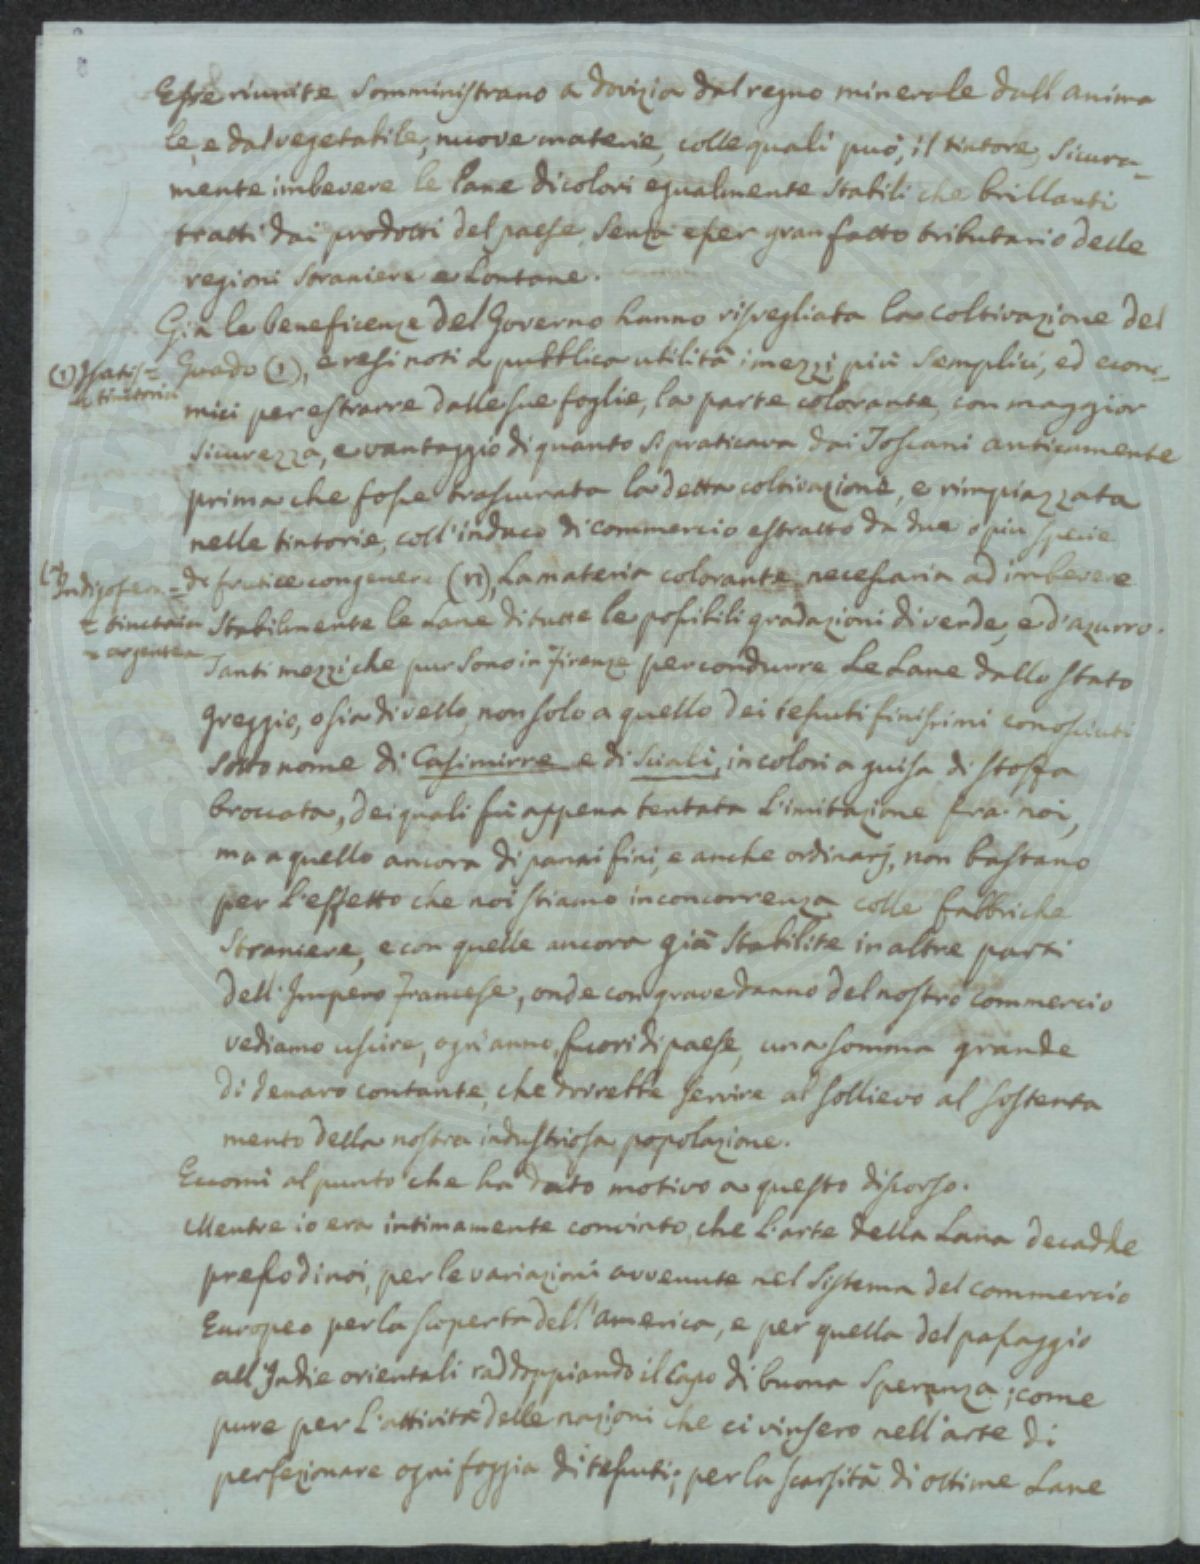 8
Esse riunite somministrano a dovizia dal regno minerale dall anima
le, e dal vegetabile, nuove materie, colle quali può, il tintore, sicura-
mente imbevere le lane di colori egualmente stabili che brillanti
tratti dai prodotti del paese, senza esser gran fatto tributario delle
regioni straniere e lontane.
Già le beneficenze del Governo hanno risvegliata la coltivazione del
Guado (1), e resi noti a pubblica utilità i mezzi più semplici, ed econo-
(1) Isatis =
= tinctoria
mici per estrarre dalle sue foglie, la parte colorante, con maggior
sicurezza, e vantaggio di quanto si praticava dai Toscani anticamente
prima che fosse trascurata la detta coltivazione, e rimpiazzata
nelle tintorie, coll'indaco di commercio estratto da due o più specie
di frutice congenere (n), la materia colorante necessaria ad imbevere
Indigofera =
= tinctoria
= argentea
stabilmente le Lane di tutte le possibili gradazioni di verde, e d'azurro.
Tanti mezzi che pur sono in Firenze per condurre Le Lane dallo stato
greggio, o sia di vello, non solo a quello dei tessuti finissimi conosciuti
sotto nome di Casimirre e di Sciali, in colori a guisa di stoffa
broccata, dei quali fù appena tentata l'imitazione fra noi,
ma a quello ancora di panni fini, e anche ordinarj, non bastano
per l'effetto che noi stiamo in concorrenza colle fabbriche
straniere, e con quelle ancora già stabilite in altre parti
dell'Impero Francese, onde con grave danno del nostro commercio
vediamo uscire, ogni anno, fuori di paese, una somma grande
di denaro contante, che dovrebbe servire al sollievo al sostenta
mento della nostra industriosa popolazione.
Eccomi al punto che ha dato motivo a questo discorso.
Mentre io era intimamente convinto, che l'arte della Lana decadde
presso di noi, per le variazioni avvenute nel sistema del commercio
Europeo per la scoperta dell'America, e per quella del passaggio
all'Indie orientali raddoppiando il Capo di buona Speranza; come
pure per l'attività delle nazioni che ci vinsero nell'arte di
perfezionare ogni foggia di tessuti; per la scarsità di ottime Lane